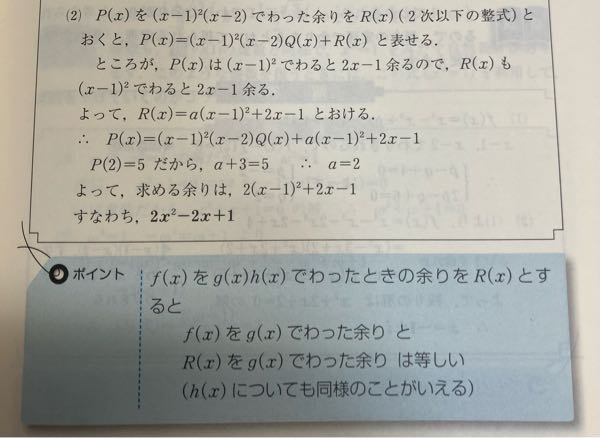 (2) P(x) を (x−1)²(x−2) でわった余りを R(x) (2次以下の整式) と
おくと, P(x)=(x−1)²(x−2)Q(x)+R(x) と表せる.
ところが, P(x) は (x−1)² でわると 2x−1 余るので, R(x) も
(x−1)² でわると 2x−1 余る.
よって, R(x)=a(x−1)²+2x−1 とおける.
∴ P(x)=(x−1)²(x−2)Q(x)+a(x−1)²+2x−1
P(2)=5 だから, a+3=5 ∴ a=2
よって, 求める余りは, 2(x−1)²+2x−1
すなわち, 2x²−2x+1
ポイント
f(x) を g(x)h(x) でわったときの余りを R(x) とす
ると
f(x) を g(x) でわった余り と
R(x) を g(x) でわった余り は等しい
(h(x) についても同様のことがいえる)